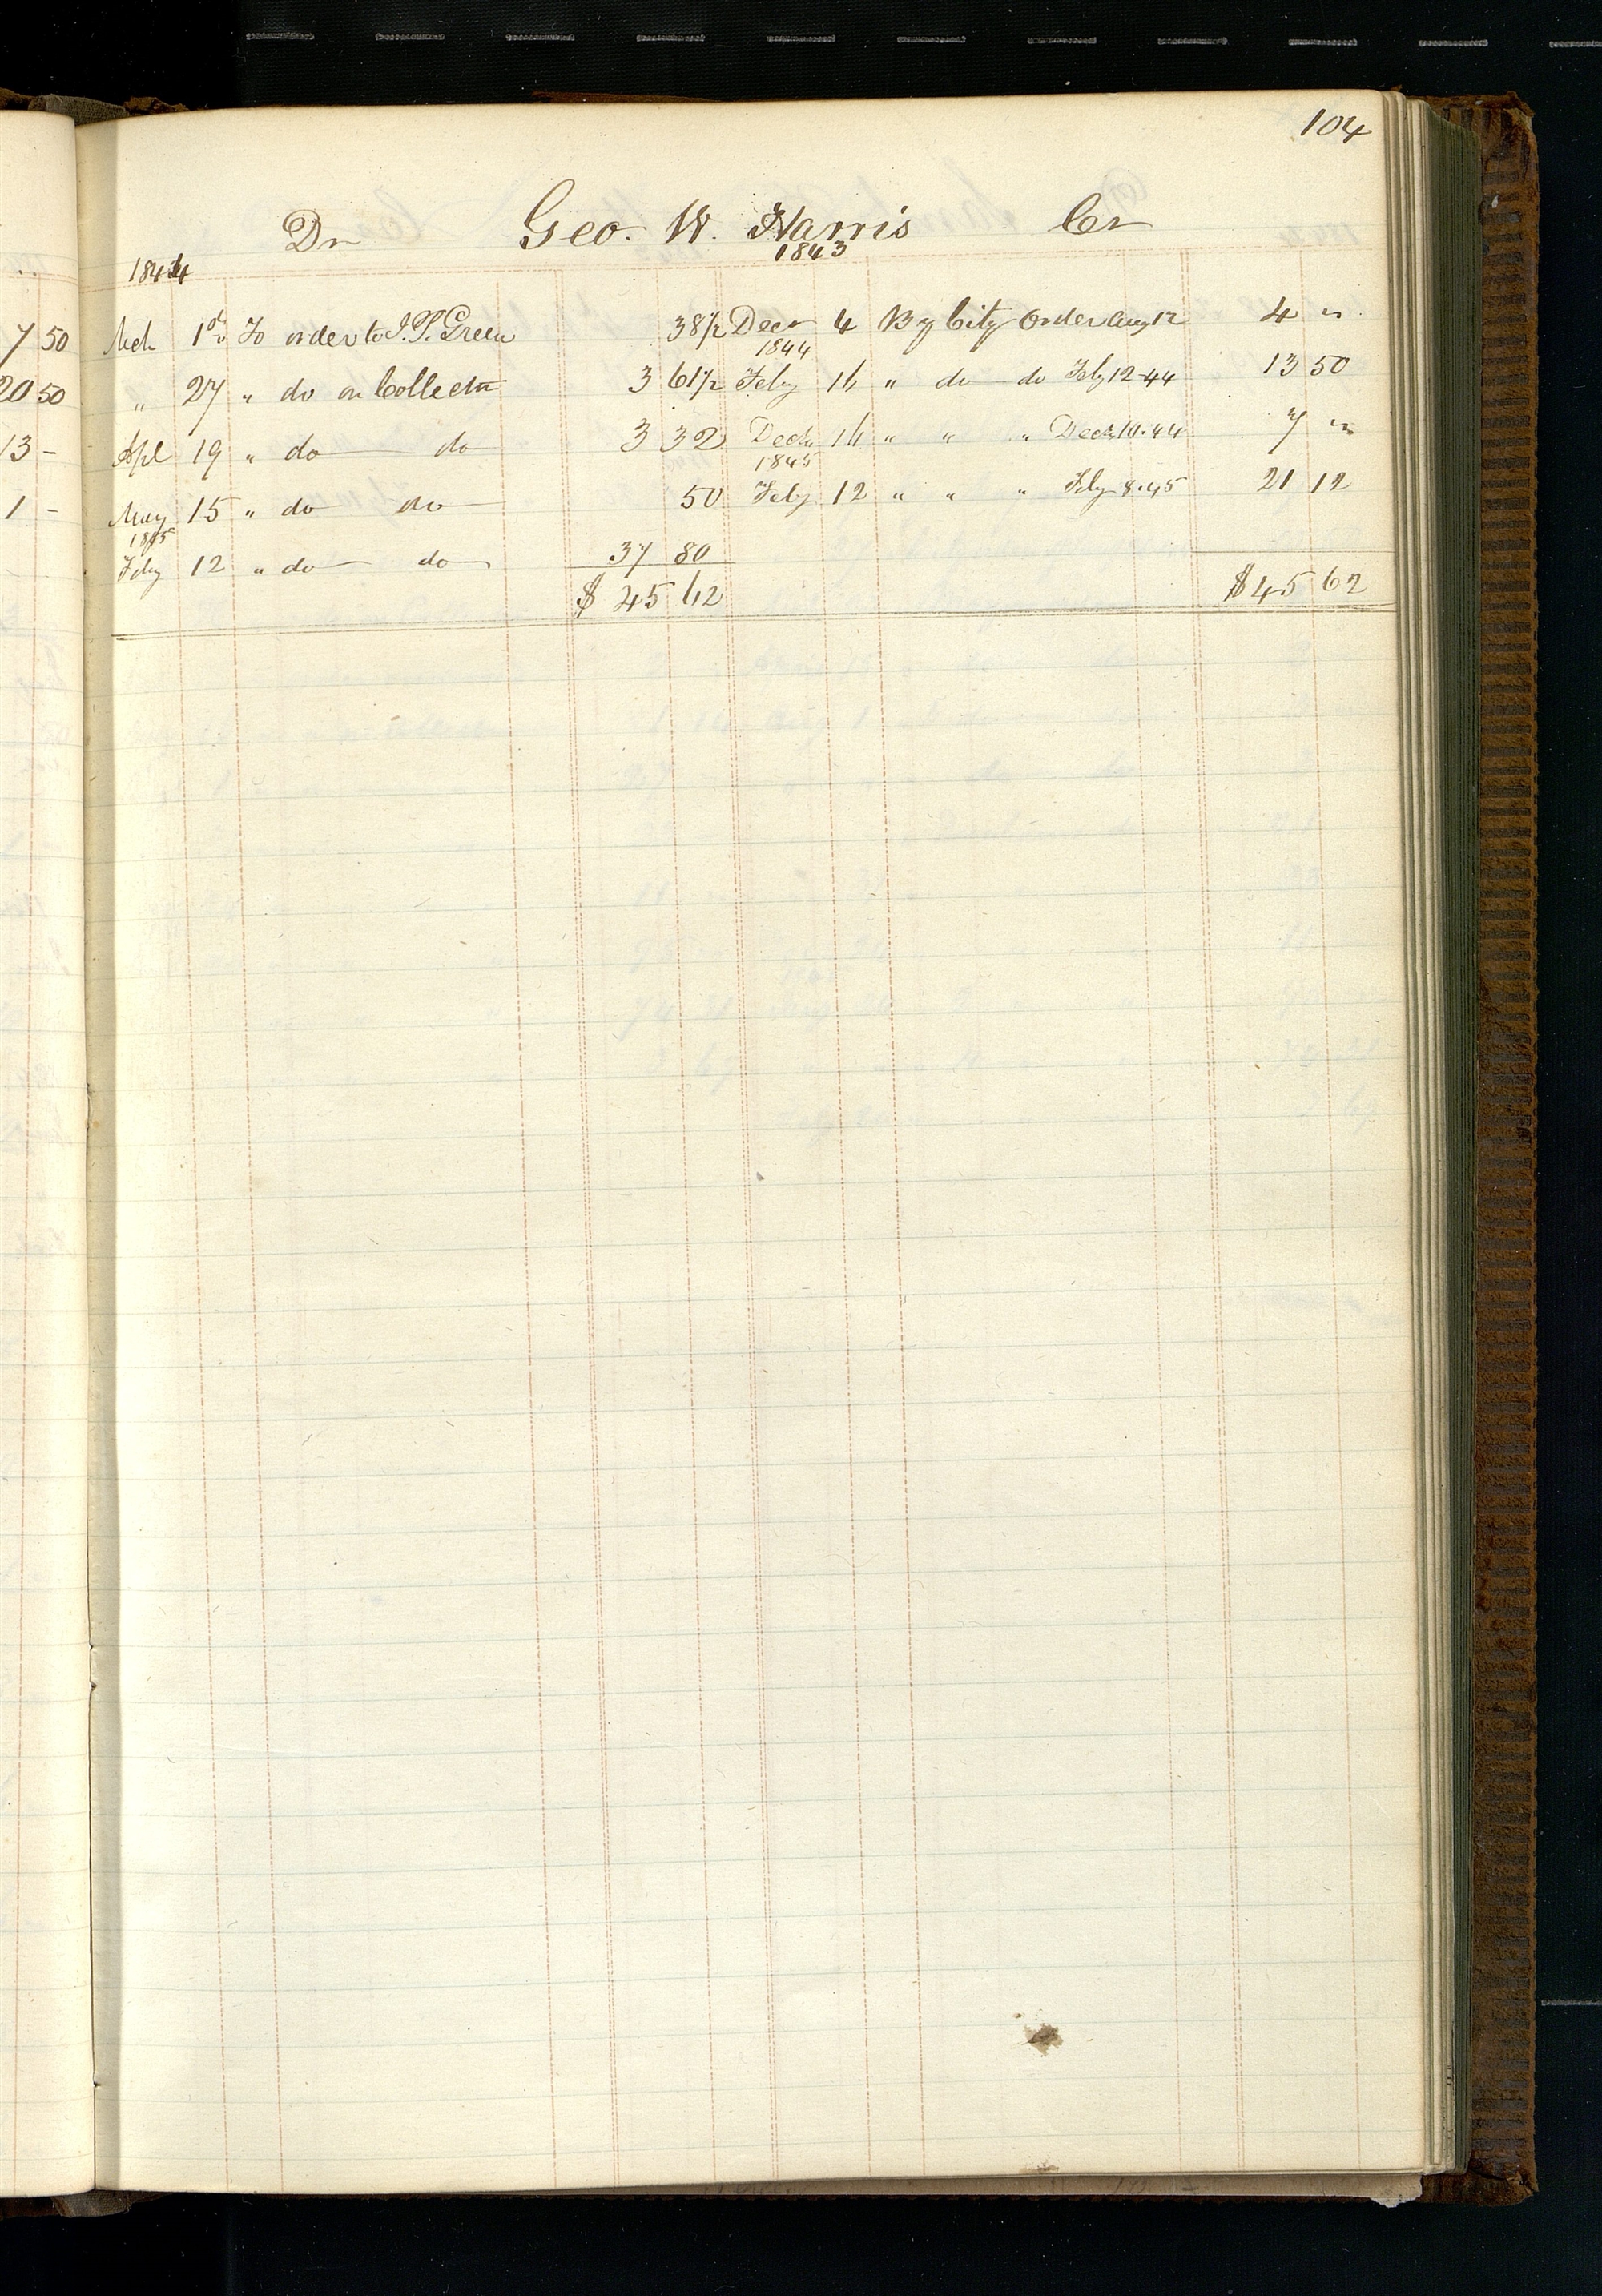 104
Dr Geo. W. Harris Cr
1844 1843
Mch 1st To order to J. P. Green 38 1/2 Decr 4 By City Order Aug 12 4 "
1844
" 27 " do on Collectr 3 61 1/2 Feby 16 " do do Feby 12-44 13 50
Apl 19 " do do 3 32 Decr 16 " " " Decr 10.44 7 "
1845
May 15 " do do 50 Feby 12 " " " Feby 8.45 21 12
1845
Feby 12 " do do 37 80
$ 45 62 $ 45 62
7 50
20 50
13 -
1 -